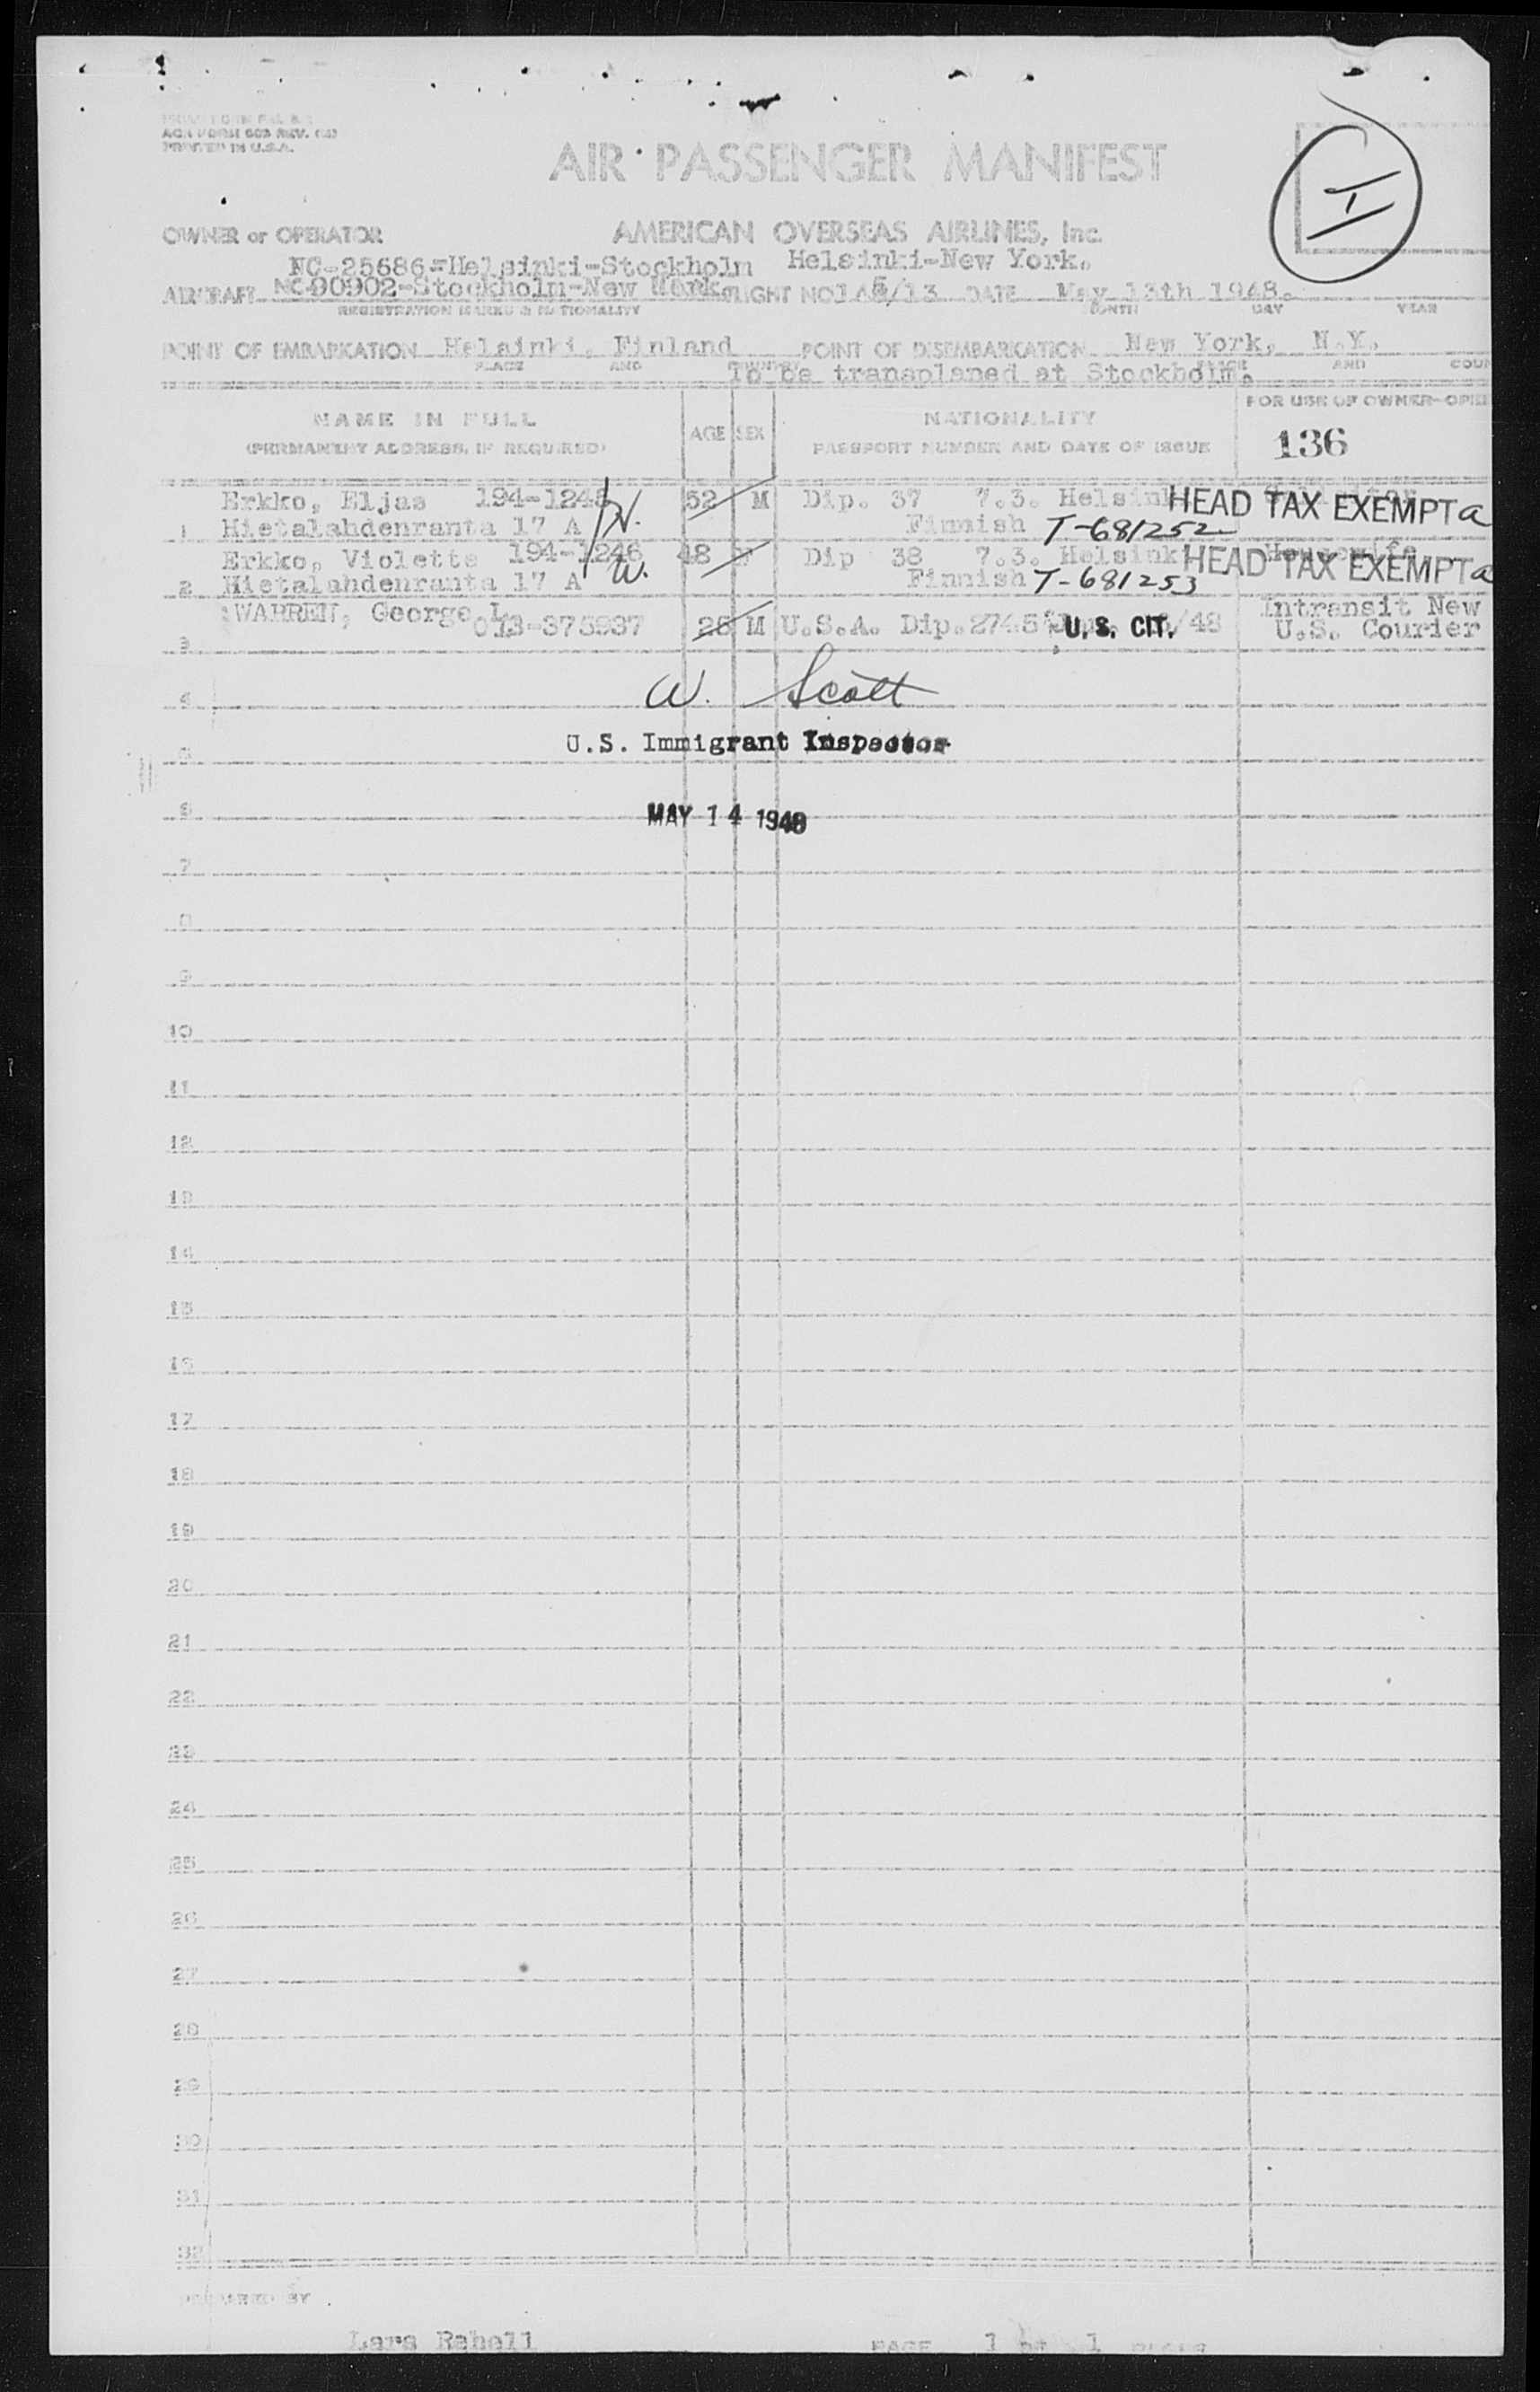 ACA FORM 603 REV. 
PRINTED IN U.S.A.
AIR PASSENGER MANIFEST
I
OWNER or OPERATOR AMERICAN OVERSEAS AIRLINES, Inc.
NC-25686-Helsinki-Stockholm Helsinki-New York.
AIRCRAFT NC-90902-Stockholm-New York. FLIGHT NO. DATE May 13th 1948.
REGISTRATION MARKS & NATIONALITY MONTH DAY YEAR
POINT OF EMBARKATION Helsinki, Finland POINT OF DISEMBARKATION New York, N.Y.
PLACE AND COUNTRY PLACE AND COUN
To be transplaned at Stockholm.
NAME IN FULL
(PERMANENT ADDRESS, IF REQUIRED)
AGE SEX
NATIONALITY
PASSPORT NUMBER AND DATE OF ISSUE
FOR USE OF OWNER-OPER
136
Erkko, Eljas 194-1245 W. 52 M Dip. 37 7.3. Helsink HEAD TAX EXEMPT a
1 Hietalahdenranta 17 A Finnish T-681252
Erkko, Violette 194-1246 W. 48 F Dip 38 7.3. Helsink HEAD TAX EXEMPT a
Housewife
2 Hietalahdenranta 17 A Finnish T-681253
WARREN, George L. Intransit New
3 013-375937 28 M U.S.A. Dip. U.S. CIT. /48 U.S. Courier
4 W. Scott
5 U.S. Immigrant Inspector
6 MAY 14 1948
7
8
9
10
11
12
13
14
15
16
17
18
19
20
21
22
23
24
25
26
27
28
29
30
31
32
PREPARED BY
Lars Rehell PAGE 1 of 1 PAGES